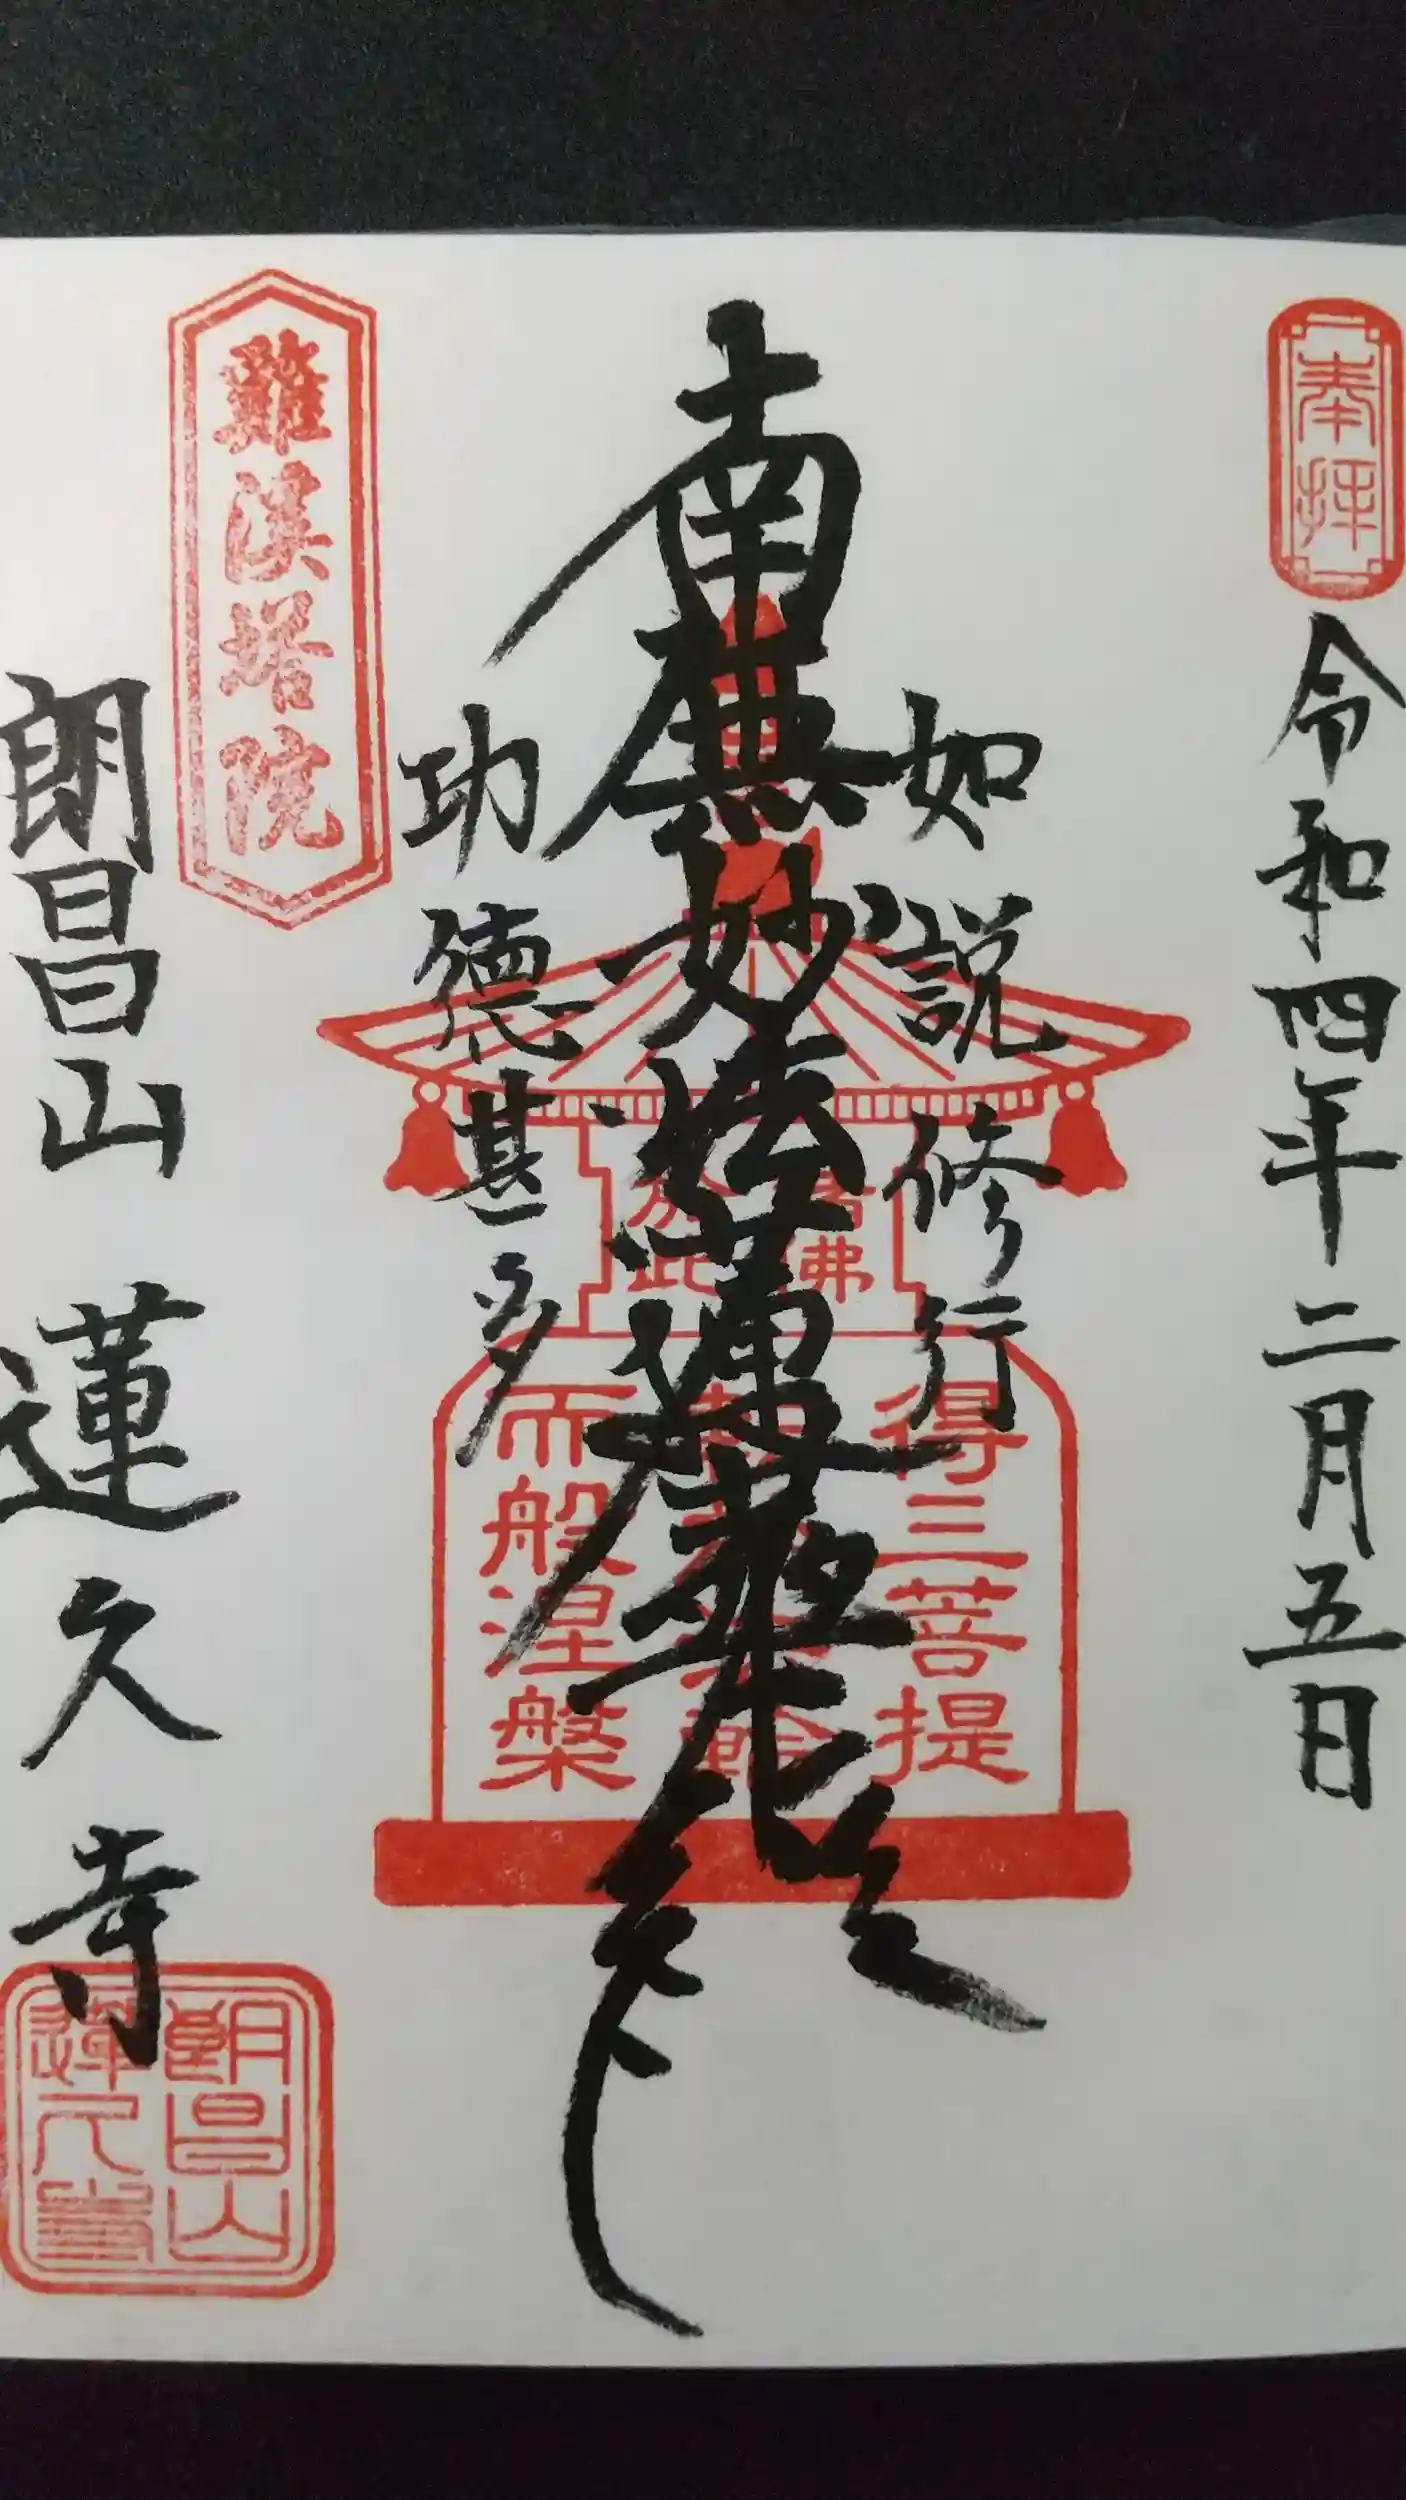 奉拝
令和四年二月五日
如説修行
南無妙法蓮華経
功徳甚多
諸佛
於此
得三菩提
而般涅槃
難渓塔院
朗昌山 蓮久寺
朗昌山
蓮久寺